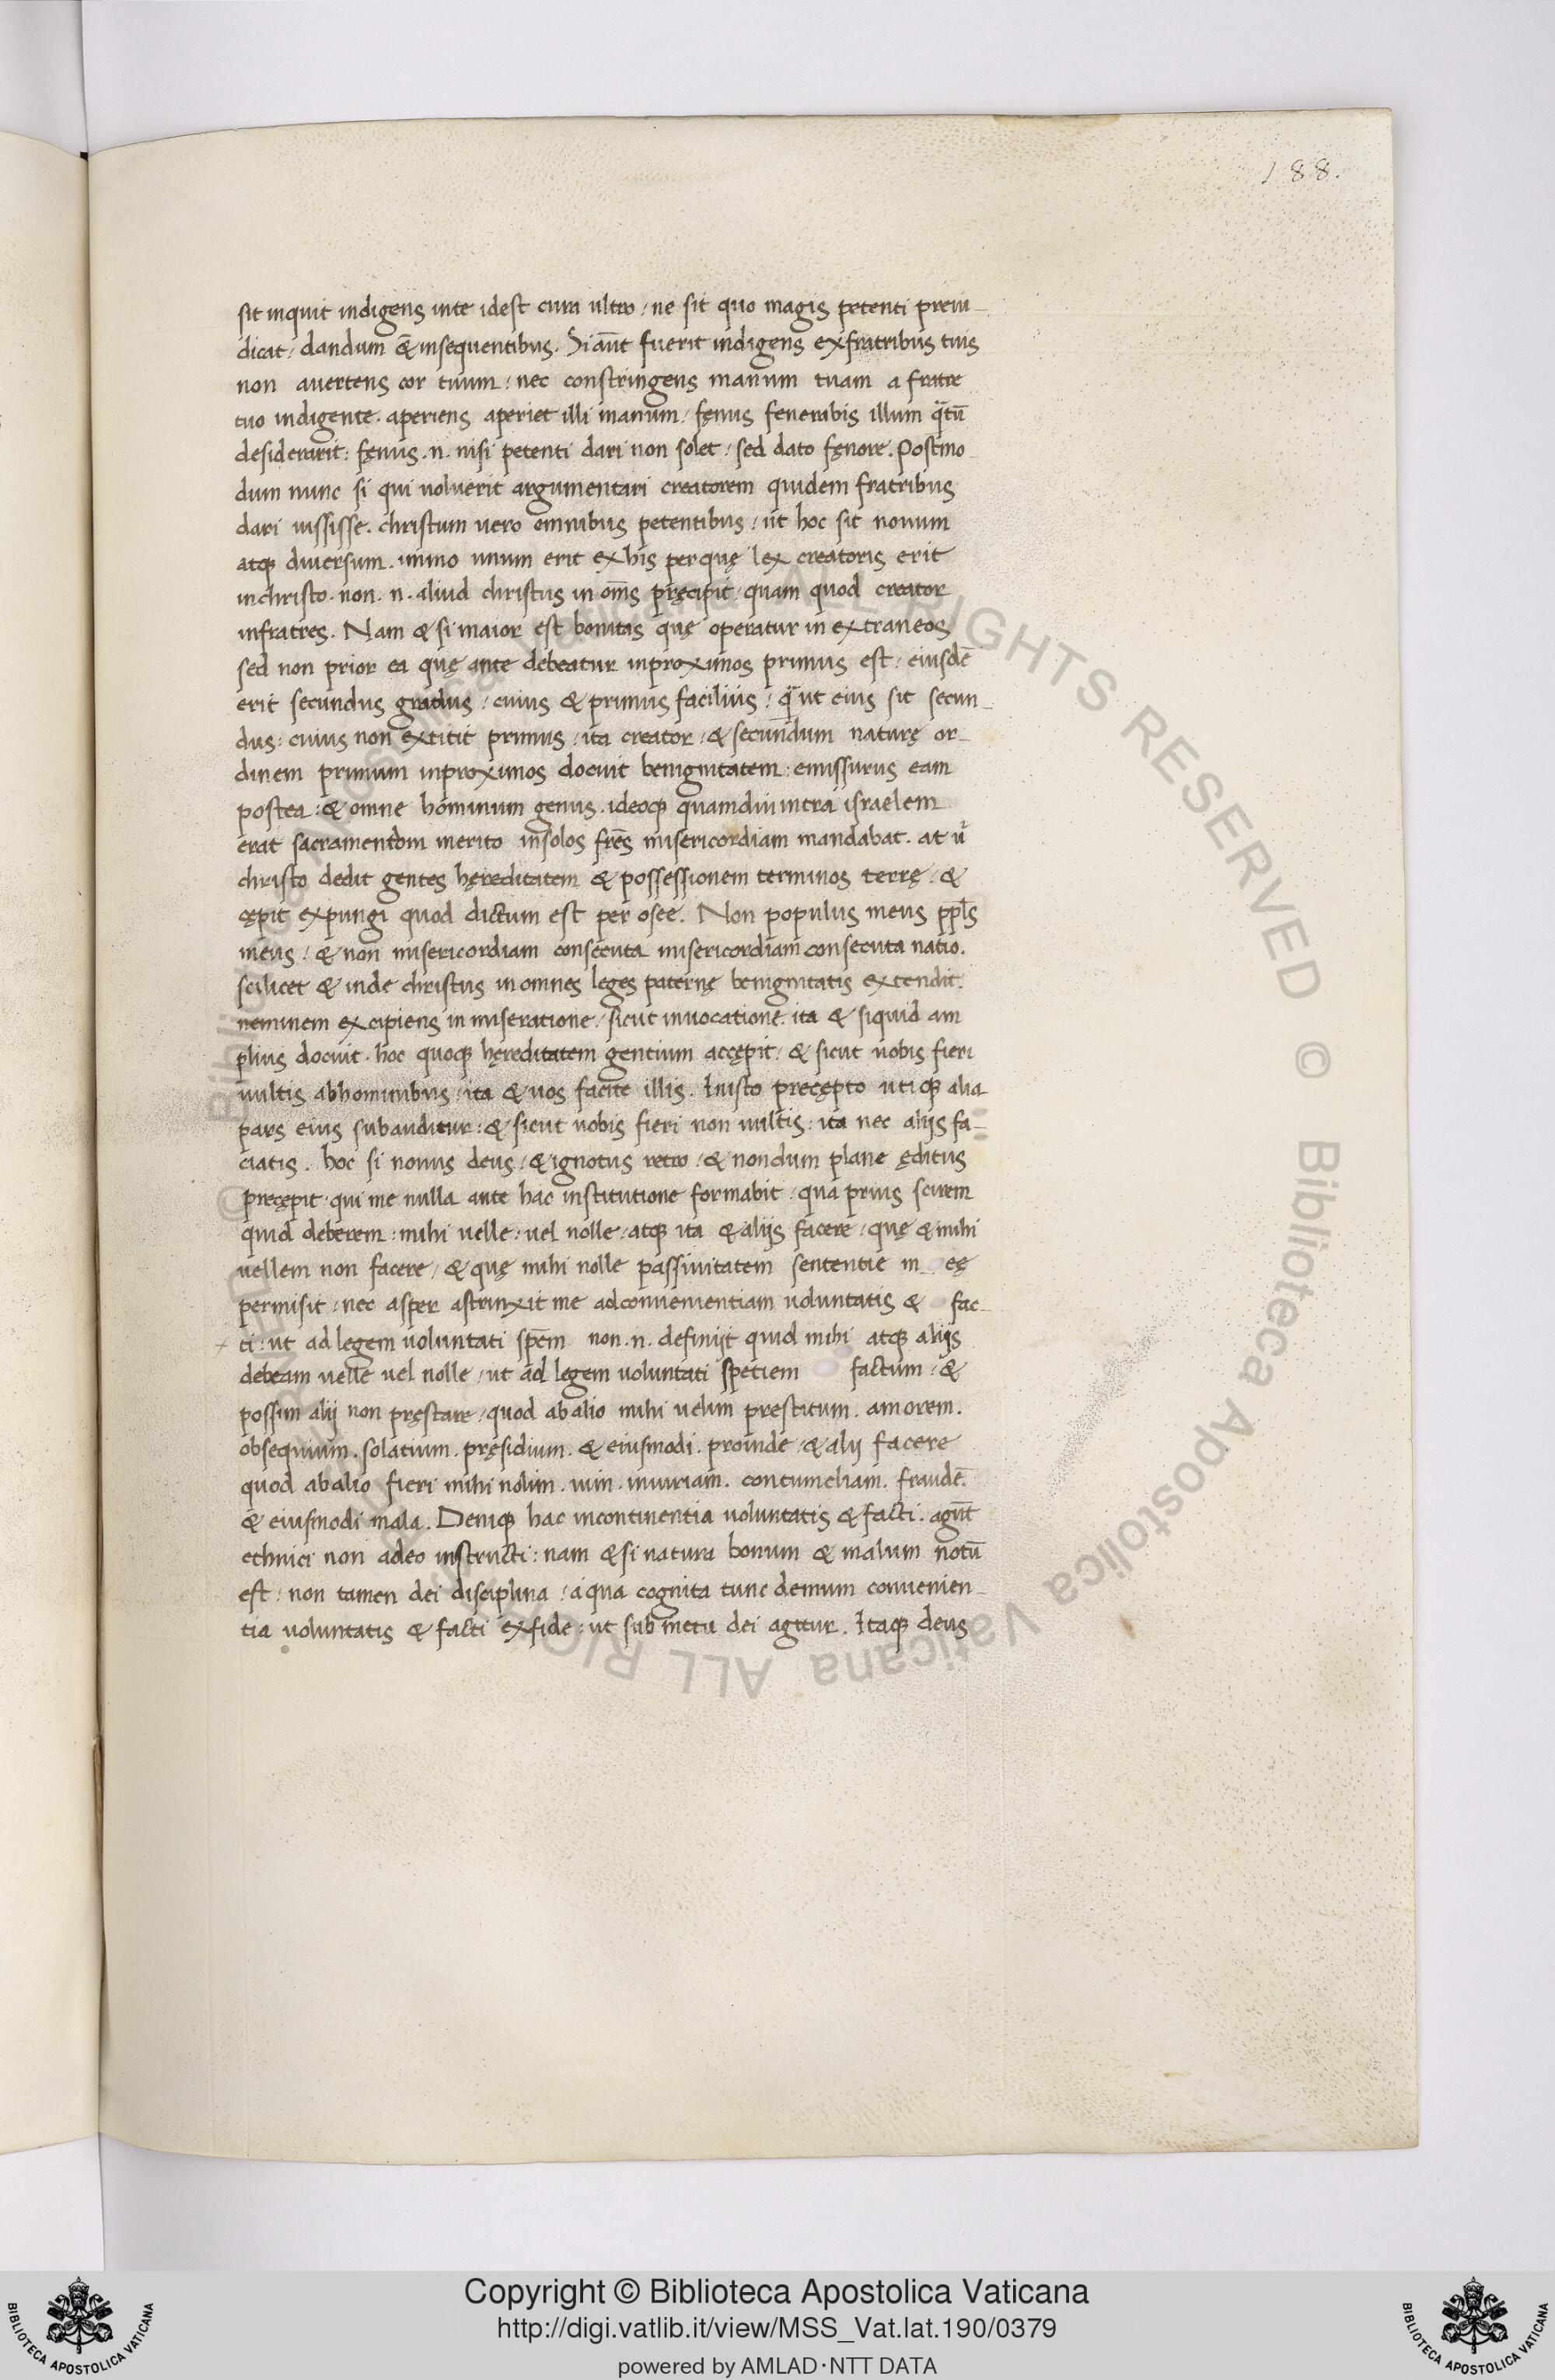 188.
sit inquit indigens inte idest cura ultro / ne sit quo magis petenti preiu-
dicat / dandum & insequentibus. Si aūt fuerit indigens exfratribus tuis
non auertens cor tuum / nec constringens manum tuam a fratre
tuo indigente. aperiens aperiet illi manum / fęnus fenerabis illum q̄tū
desiderarit: fęnus .n. nisi petenti dari non solet / sed dato fęnore. Postmo-
dum nunc si qui uoluerit argumentari creatorem quidem fratribus
dari iussisse. christum uero omnibus petentibus / ut hoc sit nouum
atqꝫ diuersum. immo unum erit exhis perquę lex creatoris erit
inchristo. non .n. aliud christus in om̄s pręcipit / quam quod creator
infratres. Nam & si maior est bonitas quę operatur in extraneos
sed non prior ea quę ante debeatur inproximos primus est / eiusdē
erit secundus gradus / cuius & primus facilius / q̄ ut eius sit secun-
dus: cuius non extitit primus / ita creator / & secundum naturę or-
dinem primum inproximos docuit benignitatem: emissurus eam
postea: & omne hominum genus. ideoqꝫ quamdiu intra israelem
erat sacramentom merito insolos fr̄es misericordiam mandabat. at ů
christo dedit gentes hęreditatem & possessionem terminos terrę / &
cępit expungi quod dictum est per osee. Non populus meus ppl̄s
meus / & non misericordiam consecuta misericordiam consecuta natio.
scilicet & inde christus in omnes leges paternę benignitatis extendit.
neminem excipiens in miseratione / sicut inuocatione. ita & siquid am
plius docuit. hoc quoqꝫ hęreditatem gentium accępit / & sicut uobis fieri
uultis abhominibus / ita & uos facite illis. Inisto precępto utiqꝫ alia
pars eius subauditur: & sicut uobis fieri non uultis: ita nec alijs fa-
ciatis. hoc si nouus deus / & ignotus retro / & nondum plane ęditus
precępit. qui me nulla ante hac institutione formabit / qua prius scirem
quid deberem: mihi uelle: uel nolle / atqꝫ ita & alijs facere / quę & mihi
uellem non facere / & quę mihi nolle passiuitatem sententie m eę
permisit / nec asper astrinxit me adconuenientiam uoluntatis & fac-
ti: ut ad legem uoluntati sp̄em non .n. definijt quid mihi atqꝫ alijs
debeam uelle uel nolle / ut ad legem uoluntati speciem factum / &
possim alij non pręstare / quod abalio mihi uelim prestitum. amorem.
obsequium. solatium. pręsidium. & eiusmodi. proinde / & alij facere
quod abalio fieri mihi nolim. uim. iniuriam. contumeliam. fraudē.
& eiusmodi mala. Deniqꝫ hac incontinentia uoluntatis & facti. agūt
ethnici non adeo instructi: nam & si natura bonum & malum notū
est / non tamen dei disciplina / a qua cognita tunc demum conuenien-
tia uoluntatis & facti exfide: ut sub metu dei agitur. Itaqꝫ deus
© Biblioteca Apostolica Vaticana ALL RIGHTS RESERVED © Biblioteca Apostolica Vaticana ALL RIGHTS RESERVED
Copyright © Biblioteca Apostolica Vaticana
http://digi.vatlib.it/view/MSS_Vat.lat.190/0379
powered by AMLAD·NTT DATA
BIBLIOTECA APOSTOLICA VATICANA
BIBLIOTECA APOSTOLICA VATICANA